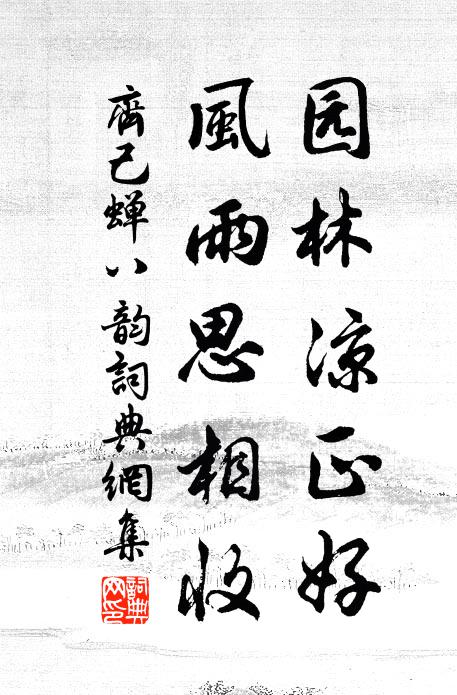 园林凉正好
風雨思相收
齊己蝉八韵詞典網集
詞典网印